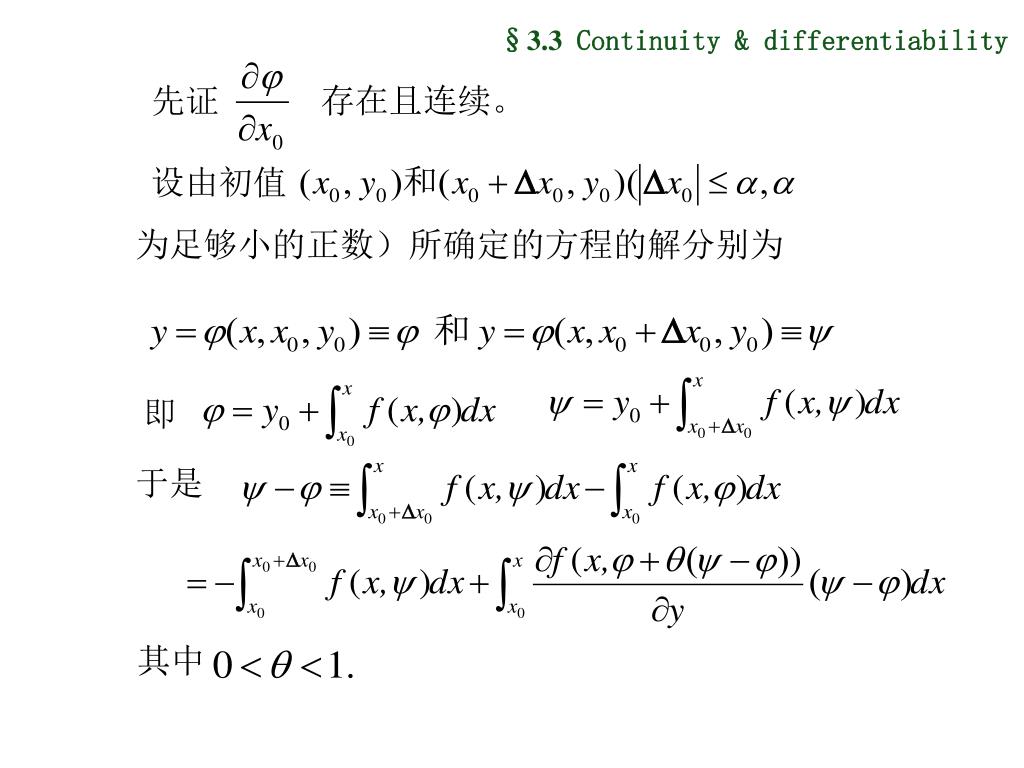 §3.3 Continuity & differentiability
先证 ∂φ/∂x₀ 存在且连续。
设由初值 (x₀, y₀)和(x₀ + Δx₀, y₀)(|Δx₀| ≤ α, α
为足够小的正数）所确定的方程的解分别为
y = φ(x, x₀, y₀) ≡ φ 和 y = φ(x, x₀ + Δx₀, y₀) ≡ ψ
即 φ = y₀ + ∫_{x₀}^{x} f(x,φ)dx ψ = y₀ + ∫_{x₀+Δx₀}^{x} f(x,ψ)dx
于是 ψ − φ ≡ ∫_{x₀+Δx₀}^{x} f(x,ψ)dx − ∫_{x₀}^{x} f(x,φ)dx
= −∫_{x₀}^{x₀+Δx₀} f(x,ψ)dx + ∫_{x₀}^{x} ∂f(x,φ + θ(ψ − φ))/∂y (ψ − φ)dx
其中 0 < θ < 1.